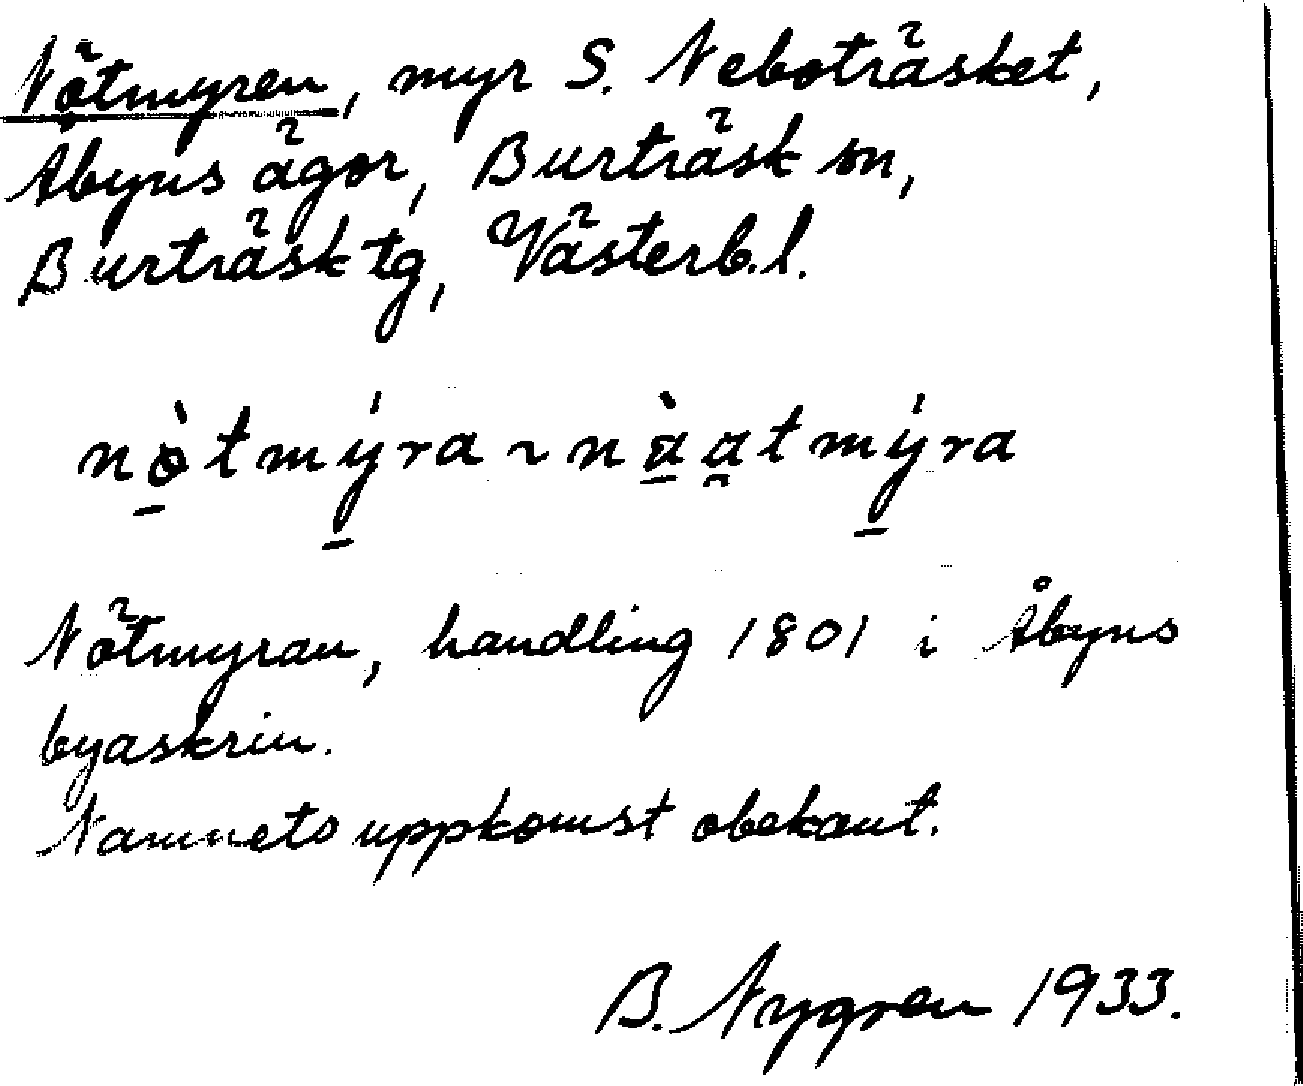 Nötmyren, myr S. Neboträsket,
Åbyns ägor, Burträsk sn,
Burträsk tg, Västerb.l.
nò̱tmý̱ra ~ nà̱a̯tmý̱ra
Nötmyran, handling 1801 i Åbyns
byaskrin.
Namnets uppkomst obekant.
B. Nygren 1933.